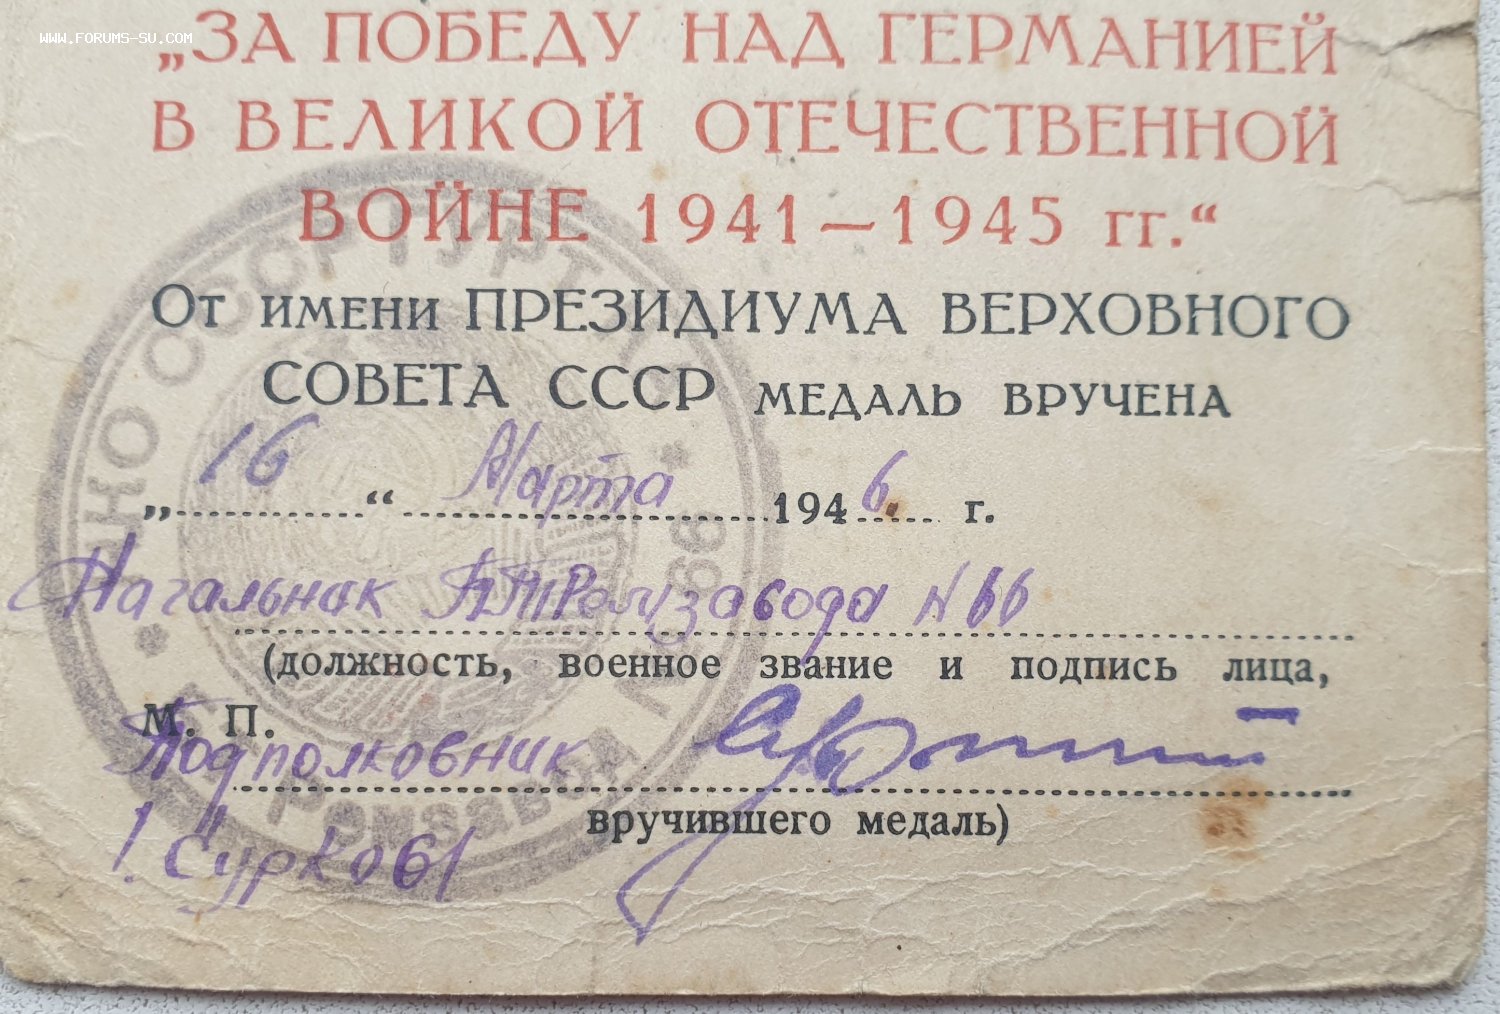 WWW.FORUMS-SU.COM
„ЗА ПОБЕДУ НАД ГЕРМАНИЕЙ
В ВЕЛИКОЙ ОТЕЧЕСТВЕННОЙ
ВОЙНЕ 1941—1945 гг.“
От имени ПРЕЗИДИУМА ВЕРХОВНОГО
СОВЕТА СССР МЕДАЛЬ ВРУЧЕНА
„16“ Марта 1946 г.
Начальник БТРемзавода № 66
(должность, военное звание и подпись лица,
М. П.
Подполковник
вручившего медаль)
/Сурков/
НКО СССР ГУРТ
Ремзавод № 66